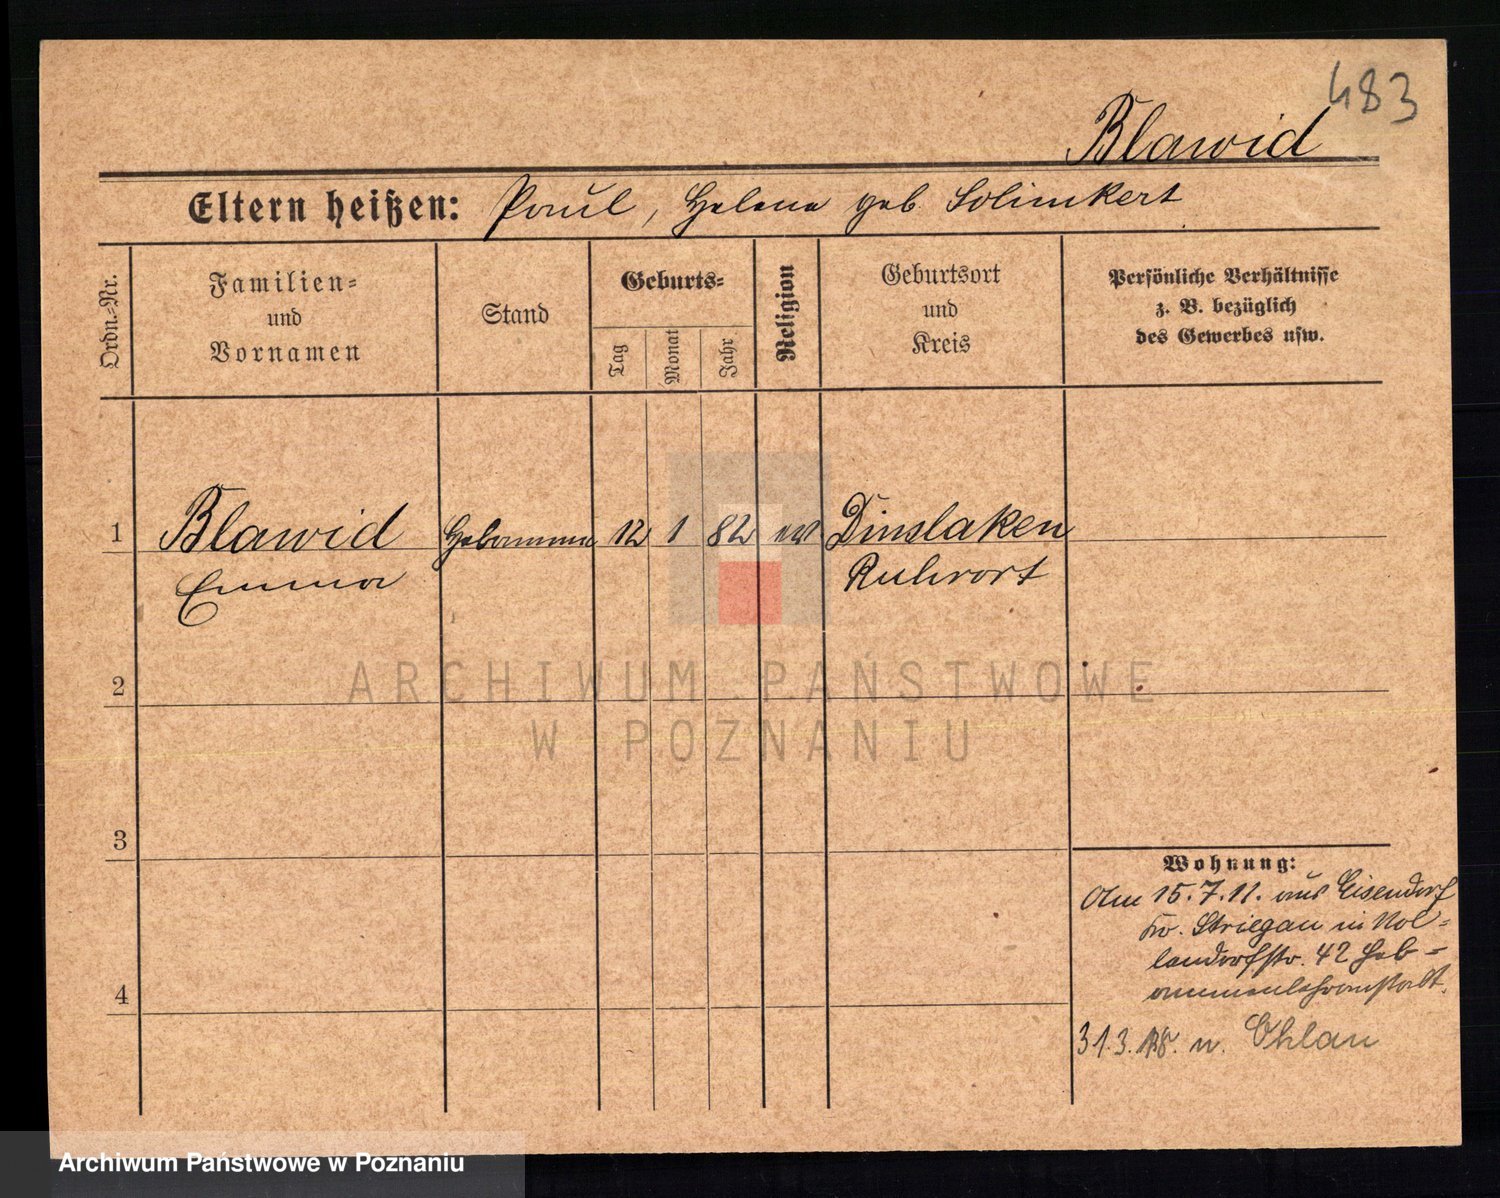 483
Blawid
Eltern heißen: Paul, Helene geb. Solimkert
Ordn.-Nr.
Familien-
und
Vornamen
Stand
Geburts-
Tag
Monat
Jahr
Religion
Geburtsort
und
Kreis
Persönliche Verhältnisse
z. B. bezüglich
des Gewerbes usw.
1
Blawid Hebamme 12 1 82 ev Dinslaken
Emma Ruhrort
2
3
4
Wohnung:
Am 15.7.11. aus Eisendorf
Kr. Striegau in Nol-
landorfstr. 42 Heb-
ammenlehranstalt.
31.3. n. Ohlau
ARCHIWUM PAŃSTWOWE
W POZNANIU
Archiwum Państwowe w Poznaniu